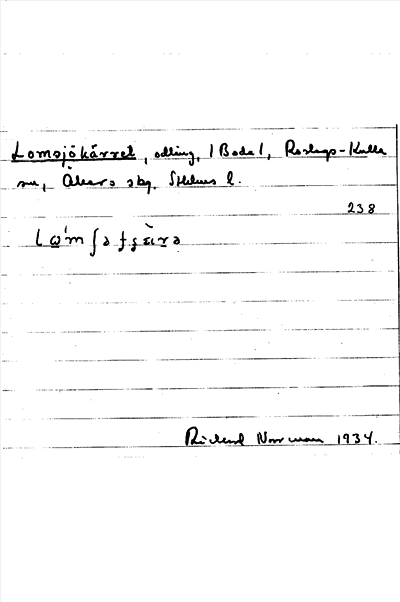 Lomsjökärret, odling, (Boda), Roslags-Kulla
sn, Åkers skg, Sthlms l.
238
Richard Norrman 1934.